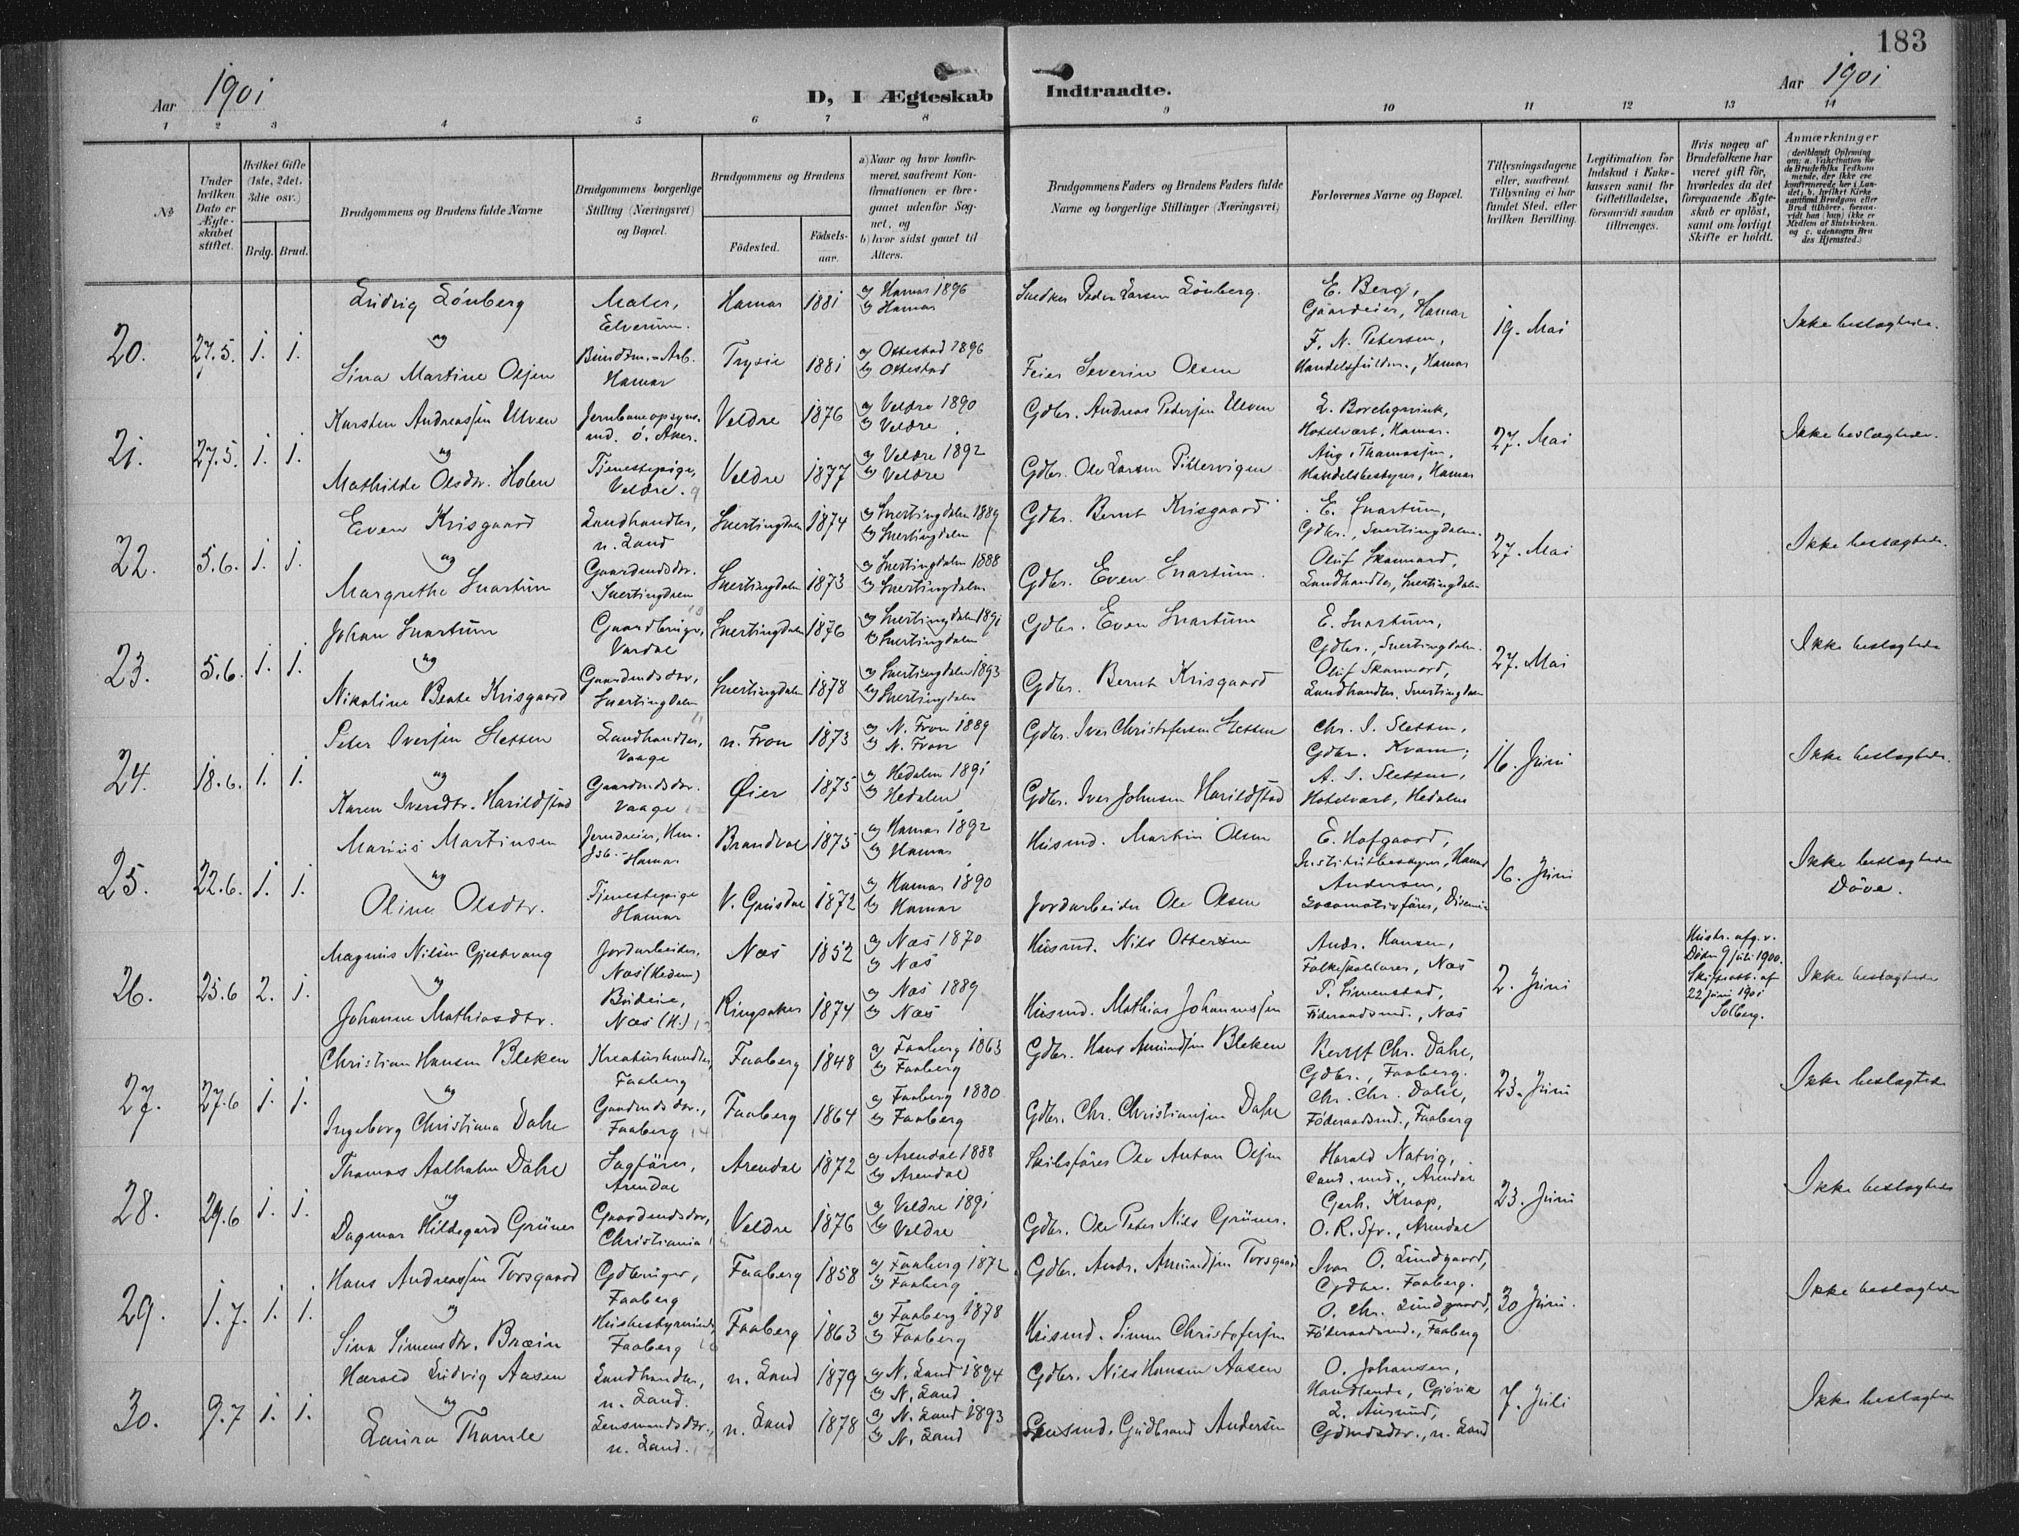 183
Aar 1901
D, I Ægteskab Indtraadte.
Aar 1901
1 2 3 4 5 6 7 8 9 10 11 12 13 14
No
Under hvilken Dato er Ægteskabet stiftet.
Hvilket Gifte (1ste, 2det, 3die osv.)
Brdg. Brud.
Brudgommens og Brudens fulde Navne
Brudgommens borgerlige Stilling (Næringsvei) og Bopæl.
Brudgommens og Brudens
Födested.
Födsels-aar.
a) Naar og hvor konfirmeret, saafremt Konfirmationen er foregaaet udenfor Sognet, og
b) hvor sidst gaaet til Alters.
Brudgommens Faders og Brudens Faders fulde Navne og borgerlige Stillinger (Næringsvei)
Forlovernes Navne og Bopæl.
Tillysningsdagene eller, saafremt Tillysning ei har fundet Sted, efter hvilken Bevilling.
Legitimation for Indskud i Enkekassen samt for Giftetilladelse, forsaavidt saadan tiltrænges.
Hvis nogen af Brudefolkene har været gift før, hvorledes da det foregaaende Ægteskab er opløst, samt om lovligt Skifte er holdt.
Anmærkninger
20. 27.5. 1. 1. Ludvig Lönberg Maler, Elverum. Hamar 1881 a) Hamar 1896 b) Hamar Snedker Peder Larsen Lönberg. E. Berg, Gaardeier, Hamar 19. Mai Ikke beslægtede.
og
Sina Martine Olsen Hamar Trysil 1881 a) Ottestad 1896 b) Ottestad Feier Severin Olsen F. N. Petersen, Hamar
21. 27.5. 1. 1. Karsten Andreassen Ulven Ö. Aker. Veldre 1876 a) Veldre 1890 b) Veldre Gdbr. Andreas Pedersen Ulven L. Borchgrevink, Hotelvært, Hamar. 27. Mai Ikke beslægtede.
og
Mathilde Olsdtr. Holen Tjenestepige, Veldre. Veldre 1877 a) Veldre 1892 b) Veldre Gdbr. Ole Larsen Aug. Thomassen, Handelsbestyrer, Hamar
22. 5.6. 1. 1. Even Krisgaard Landhandler, n. Land Snertingdalen 1874 a) Snertingdalen 1889 b) Snertingdalen Gdbr. Bernt Krisgaard E. Snartum, Gdbr., Snertingdalen. 27. Mai Ikke beslægtede.
og
Margrethe Snartum Gaardmdsdtr. Snertingdalen Snertingdalen 1873 a) Snertingdalen 1888 b) Snertingdalen Gdbr. Even Snartum. Oluf Skonnord, Landhandler, Snertingdalen
23. 5.6. 1. 1. Johan Snartum Gaardbruger, Vardal Snertingdalen 1876 a) Snertingdalen 1891 b) Snertingdalen Gdbr. Even Snartum E. Snartum, Gdbr., Snertingdalen. 27. Mai Ikke beslægtede
og
Nikoline Beate Krisgaard Gaardmdsdtr., Snertingdalen Snertingdalen 1878 a) Snertingdalen 1893 b) Snertingdalen Gdbr. Bernt Krisgaard Oluf Skonnord, Landhandler, Snertingdalen
24. 18.6. 1. 1. Peter Iversen Sletten Landhandler, Vaage n. Fron 1873 a) N. Fron 1889 b) N. Fron Gdbr. Iver Christofersen Sletten Chr. I. Sletten, Gdbr. Kvam, 16. Juni Ikke beslægtede.
og
Karen Iversdtr. Harildstad Gaardmdsdtr. Vaage Øier 1875 a) Hedalen 1891 b) Hedalen Gdbr. Iver Johnsen Harildstad A. I. Sletten, Hotelvært, Hedalen
25. 22.6. 1. 1. Marius Martinsen Hamar Brandval 1875 a) Hamar 1892 b) Hamar Husmd. Martin Olsen E. Hofgaard, Institutbestyrer, Hamar 16. Juni Ikke beslægtede Döve.
og
Oline Olsdtr. Tjenestepige Hamar V. Gausdal 1872 a) Hamar 1890 b) Hamar Jordarbeider Ole Olsen Andersen, Locomotivförer,
26. 25.6 2. 1. Magnus Nilsen Gjestvang Jordarbeider, Næs (Hedem) Næs 1852 a) Næs 1870 b) Næs Husmd. Nils Ottersen Andr. Hansen, Næs 2. Juni Hustr. afg. v. Döden 9 Juli 1900. Skifteatt. af 22 Juni 1901 Solberg. Ikke beslægtede
og
Johanne Mathiasdtr. Budeie, Næs (H.) Ringsaker 1874 a) Næs 1889 b) Næs Husmd. Mathias Johannessen P. Simenstad, Föderaadsmd., Næs
27. 27.6 1. 1. Christian Hansen Bleken Kreaturhandler, Faaberg Faaberg 1848 a) Faaberg 1863 b) Faaberg Gdbr. Hans Amundsen Bleken Berndt Chr. Dahl, Gdbr., Faaberg. 23. Juni Ikke beslægtede
og
Ingeborg Christiana Dahl Gaardmdsdtr., Faaberg Faaberg 1864 a) Faaberg 1880 b) Faaberg Gdbr. Chr. Christiansen Dahl Chr. Chr. Dahl, Föderaadsmd., Faaberg
28. 29.6 1. 1. Thomas Aalholm Dahl Sagförer, Arendal Arendal 1872 a) Arendal 1888 b) Arendal Skibsförer Ole Anton Olsen Harald Natvig, Cand. med., Arendal 23. Juni Ikke beslægtede
og
Dagmar Hildegard Grüner Gaardmdsdtr., Christiania Veldre 1876 a) Veldre 1891 b) Veldre Gdbr. Ole Peter Nils Grüner. Gerh. Knap, O.R.Sfr., Arendal
29. 1.7. 1. 1. Hans Andreassen Torsgaard Gdbruger, Faaberg Faaberg 1858 a) Faaberg 1872 b) Faaberg Gdbr. Andr. Amundsen Torsgaard Ivar O. Lundgaard, Gdbr. Faaberg. 30 Juni. Ikke beslægtede
og
Sina Simensdtr. Bræin Husbestyrerinde, Faaberg Faaberg 1863 a) Faaberg 1878 b) Faaberg Husmd. Simen Christofersen O. Chr. Lundgaard, Föderaadsmd., Faaberg
30. 9.7 1. 1. Harald Ludvig Aasen Landhandler, n. Land. n. Land 1879 a) N. Land 1894 b) N. Land Gdbr. Nils Hansen Aasen O. Johansen, Handlende, Gjövik 7. Juli Ikke beslægtede
og
Laura Thomle Lensmandsdtr., n. Land. n. Land 1878 a) N. Land 1893 b) N. Land Lensmd. Gudbrand Andersen L. Aurund, n. Land